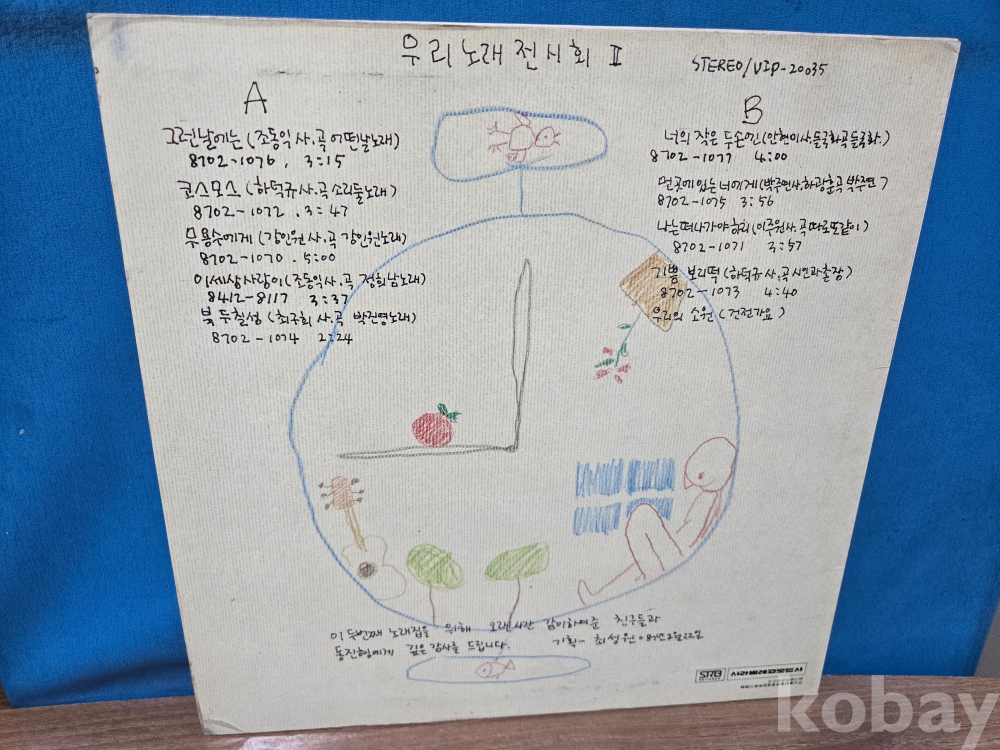 우리노래전시회 II
STEREO/VIP-20035
A
그런날에는 (조동익 사.곡 어떤날노래)
8702-1076, 3:15
코스모스 (하덕규 사.곡 소리들노래)
8702-1072, 3:47
무용수에게 (강인원 사.곡 강인원노래)
8702-1070, 5:00
이세상사랑이 (조동익 사.곡 정희남노래)
8412-8117 3:37
북두칠성 (최구희 사.곡 박진영노래)
8702-1074 2:24
B
너의 작은 두손엔 (안현이사.들국화곡 들국화)
8702-1077 4:00
먼곳에있는너에게 (박주연사.하광훈곡 박주연)
8702-1075 3:56
나는떠나가야하리 (이주원사.곡 따로또같이)
8702-1071 3:57
기쁨 보리떡 (하덕규사.곡 시인과촌장)
8702-1073 4:40
우리의 소원 (건전가요)
이 두번째 노래집을 위해 오랜시간 같이하여준 친구들과
동진형에게 깊은감사를 드립니다. 기획- 최성원 87년2월22일
SRB 서라벌레코오드사
kobay